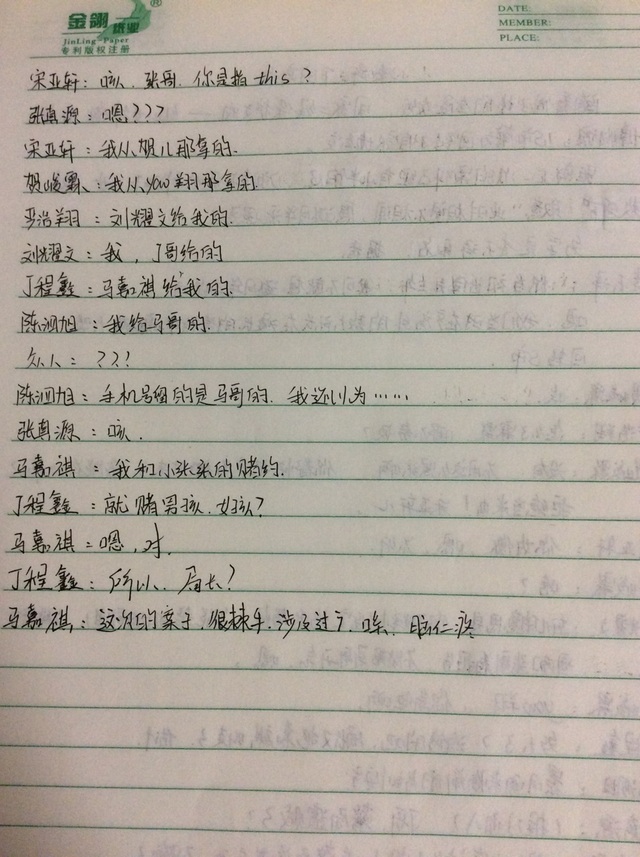 金翎
纸业
JinLing-Paper
专利版权注册
®
DATE:
MEMBER:
PLACE:
宋亚轩：咳、张哥、你是指this？
张真源：嗯？？？
宋亚轩：我从贺儿那拿的.
贺峻霖：我从you翔那拿的.
严浩翔：刘耀文给我的.
刘耀文：我，丁哥给的
丁程鑫：马嘉祺给我的.
陈泗旭：我给马哥的.
众人：？？？
陈泗旭：手机号留的是马哥的、我还以为……
张真源：咳.
马嘉祺：我和小张张的赌约.
丁程鑫：就赌男孩、女孩？
马嘉祺：嗯，对.
丁程鑫：所以、局长？
马嘉祺：这次的案子，很棘手，涉及过广，唉、脑仁疼